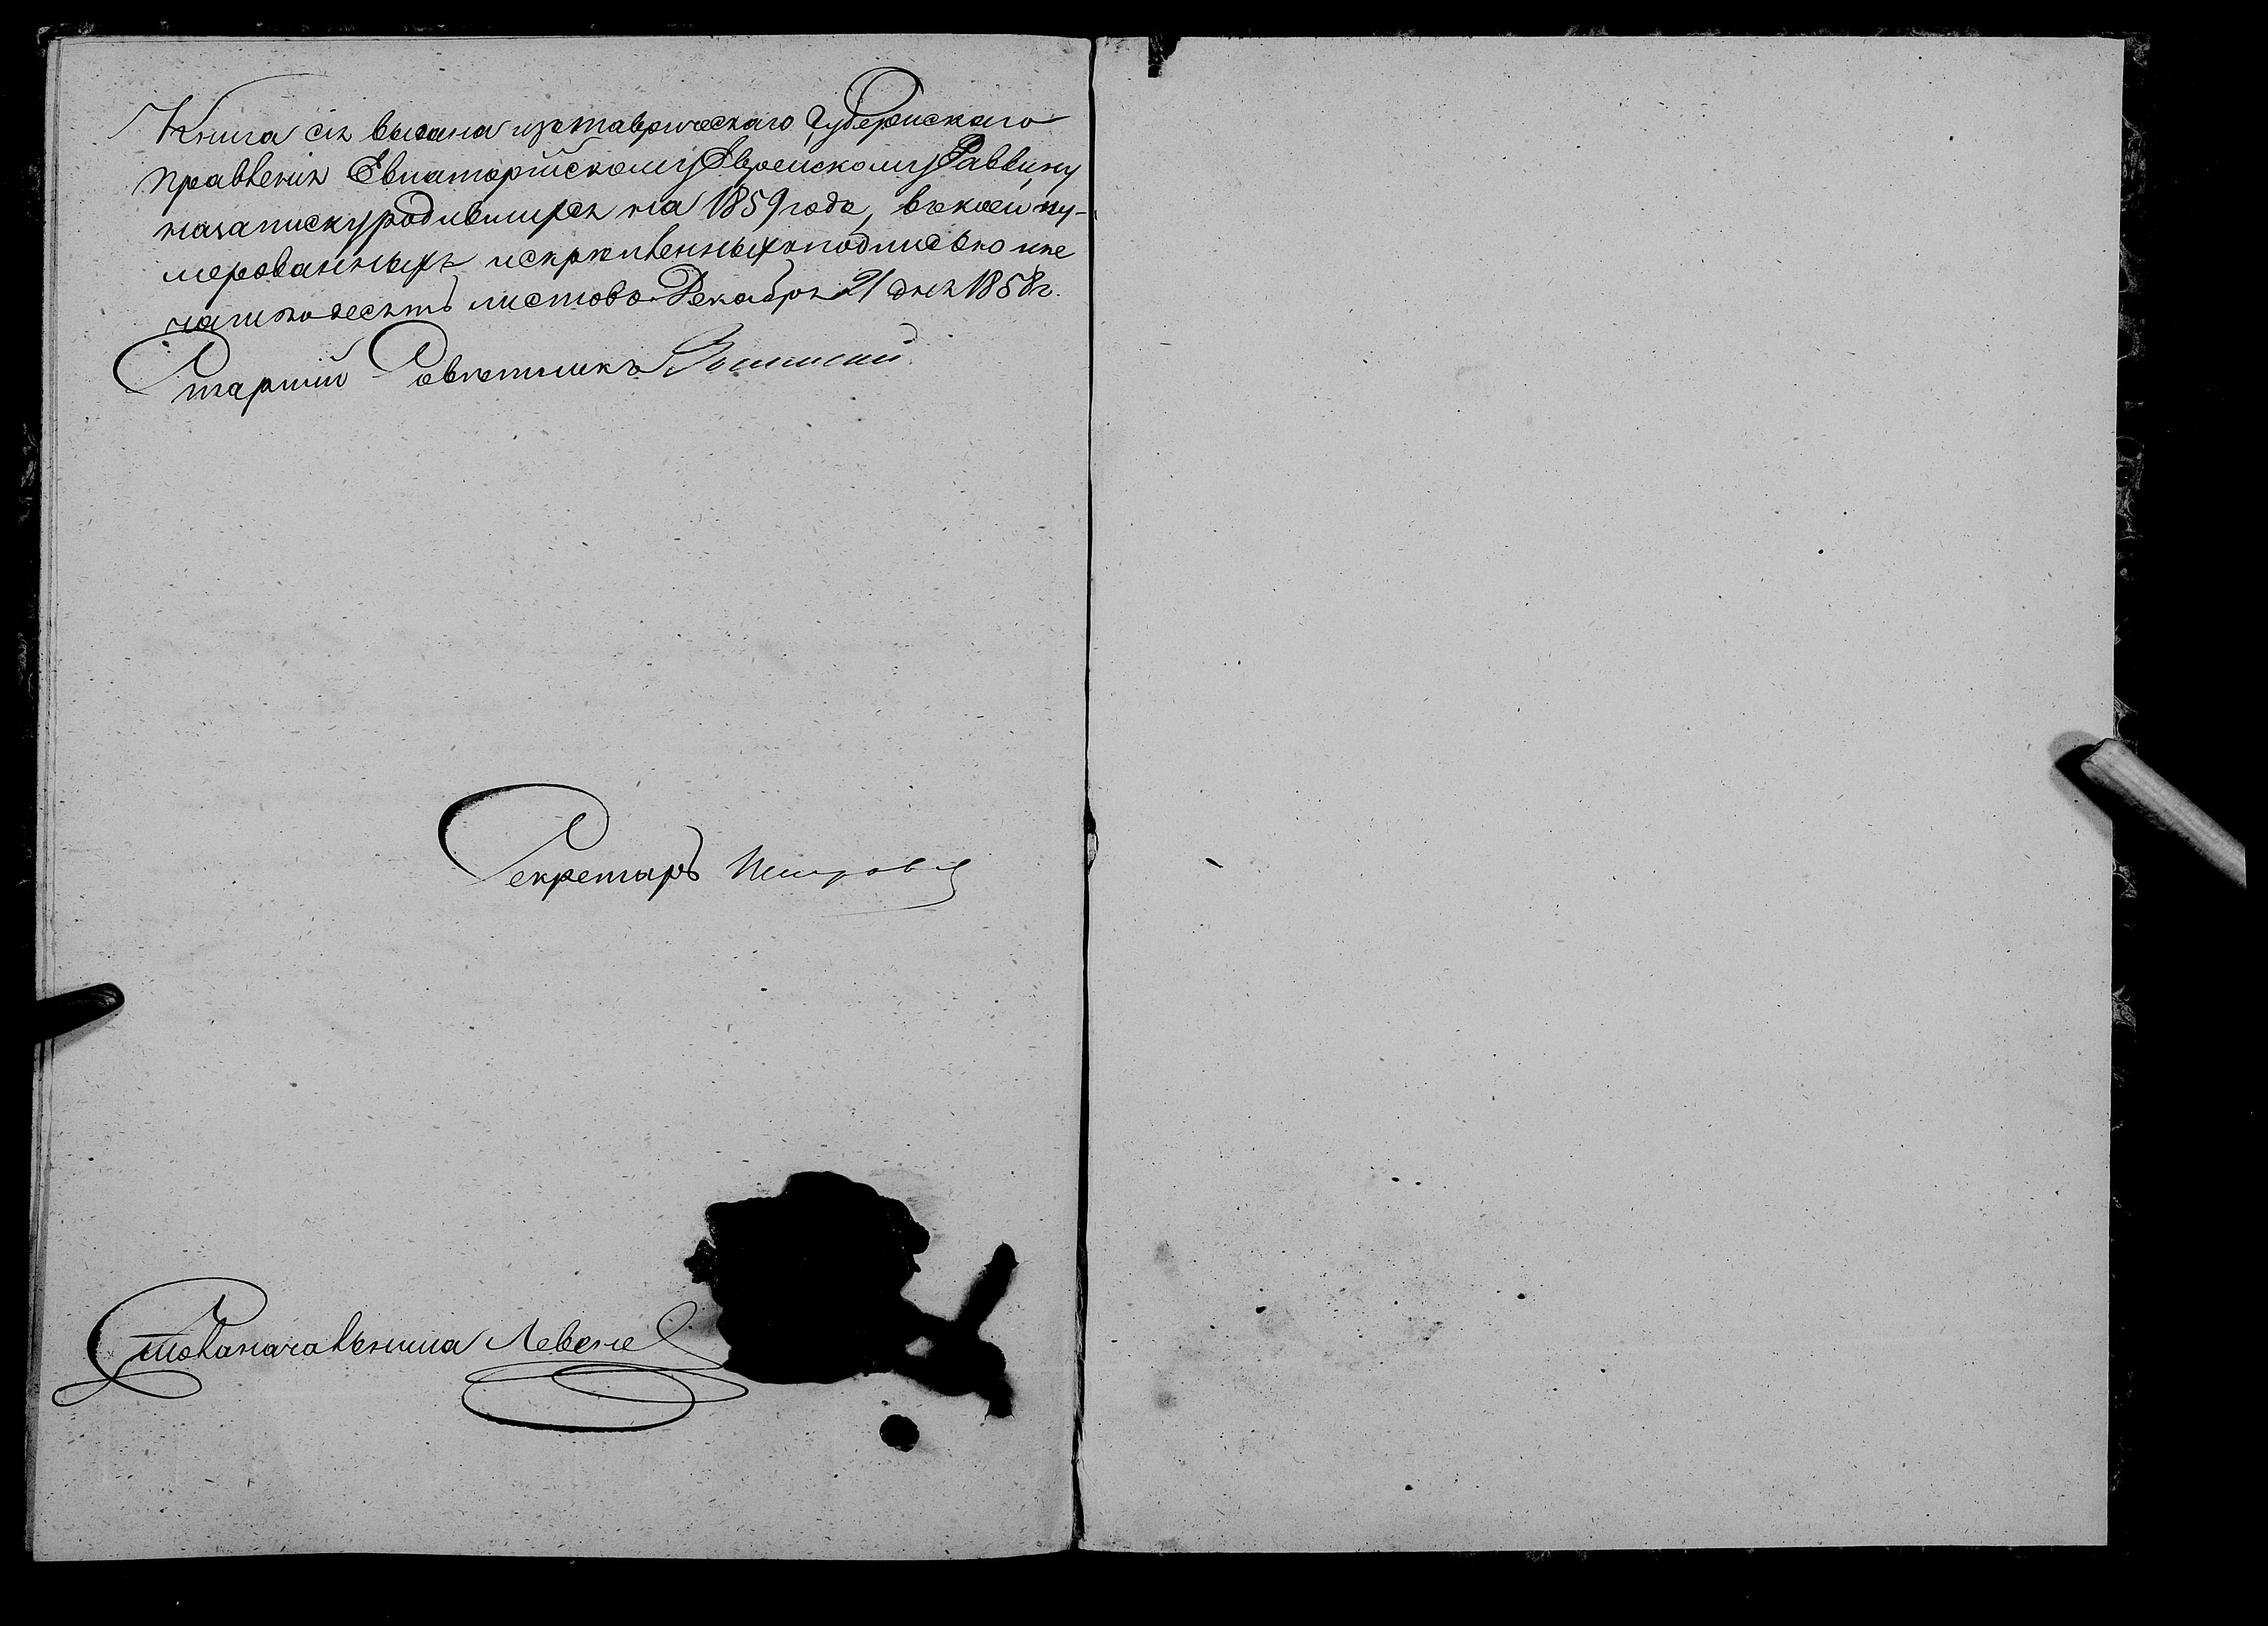 Книга сія выдана изъ таврическаго Губернскаго
правленія Евпаторійскому Еврейскому Раввину
на записку родившихся на 1859 годъ, въ коей ну-
мерованныхъ и скрѣпленныхъ подписью
листовъ Декабря 21 дня 1858 г.
Старшій Совѣтникъ
Секретарь
Столоначальника